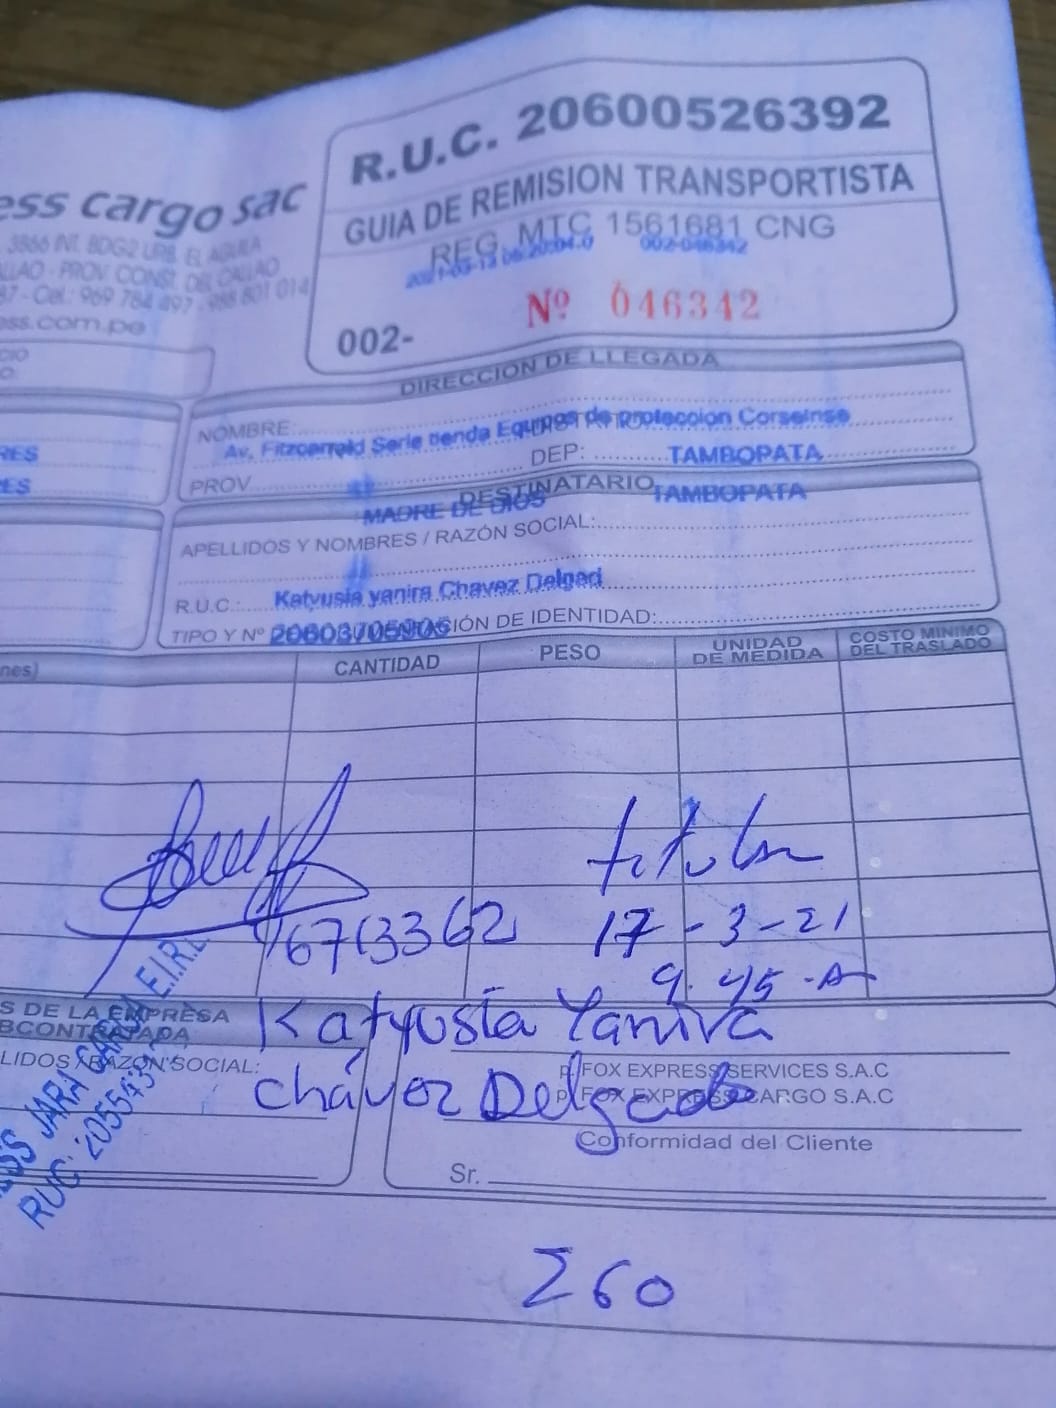 R.U.C. 20600526392
ess cargo sac
GUIA DE REMISION TRANSPORTISTA
3866 INT. BDG2 URB. EL AGUILA
REG. MTC 1561681 CNG
LLAO - PROV. CONST. DEL CALLAO
2021-03-13 06:20:04.0 002-046342
87 - Cel.: 969 784 497 - 988 801 014
Nº 046342
ess.com.pe
002-
CIO
O:
DIRECCION DE LLEGADA
NOMBRE:
Av. Fitzcarrald Serie tienda Equipos de proteccion Corseinse
RES
DEP: TAMBOPATA
PROV
ES
DESTINATARIO
TAMBOPATA
MADRE DE DIOS
APELLIDOS Y NOMBRES / RAZÓN SOCIAL:
R.U.C.: Katyusia yanira Chavez Delgad
TIPO Y Nº IDENTIDAD:
nes) CANTIDAD PESO UNIDAD DE MEDIDA COSTO MINIMO DEL TRASLADO
titular
17-3-21
9.45-A
S DE LA EMPRESA
BCONTRATADA
LIDOS / RAZÓN SOCIAL:
Katyusia Yanira
Chávez Delgado
p. FOX EXPRESS SERVICES S.A.C
p. FOX EXPRESS CARGO S.A.C
Conformidad del Cliente
Sr.
JARA
E.I.R.L
RUC:
260